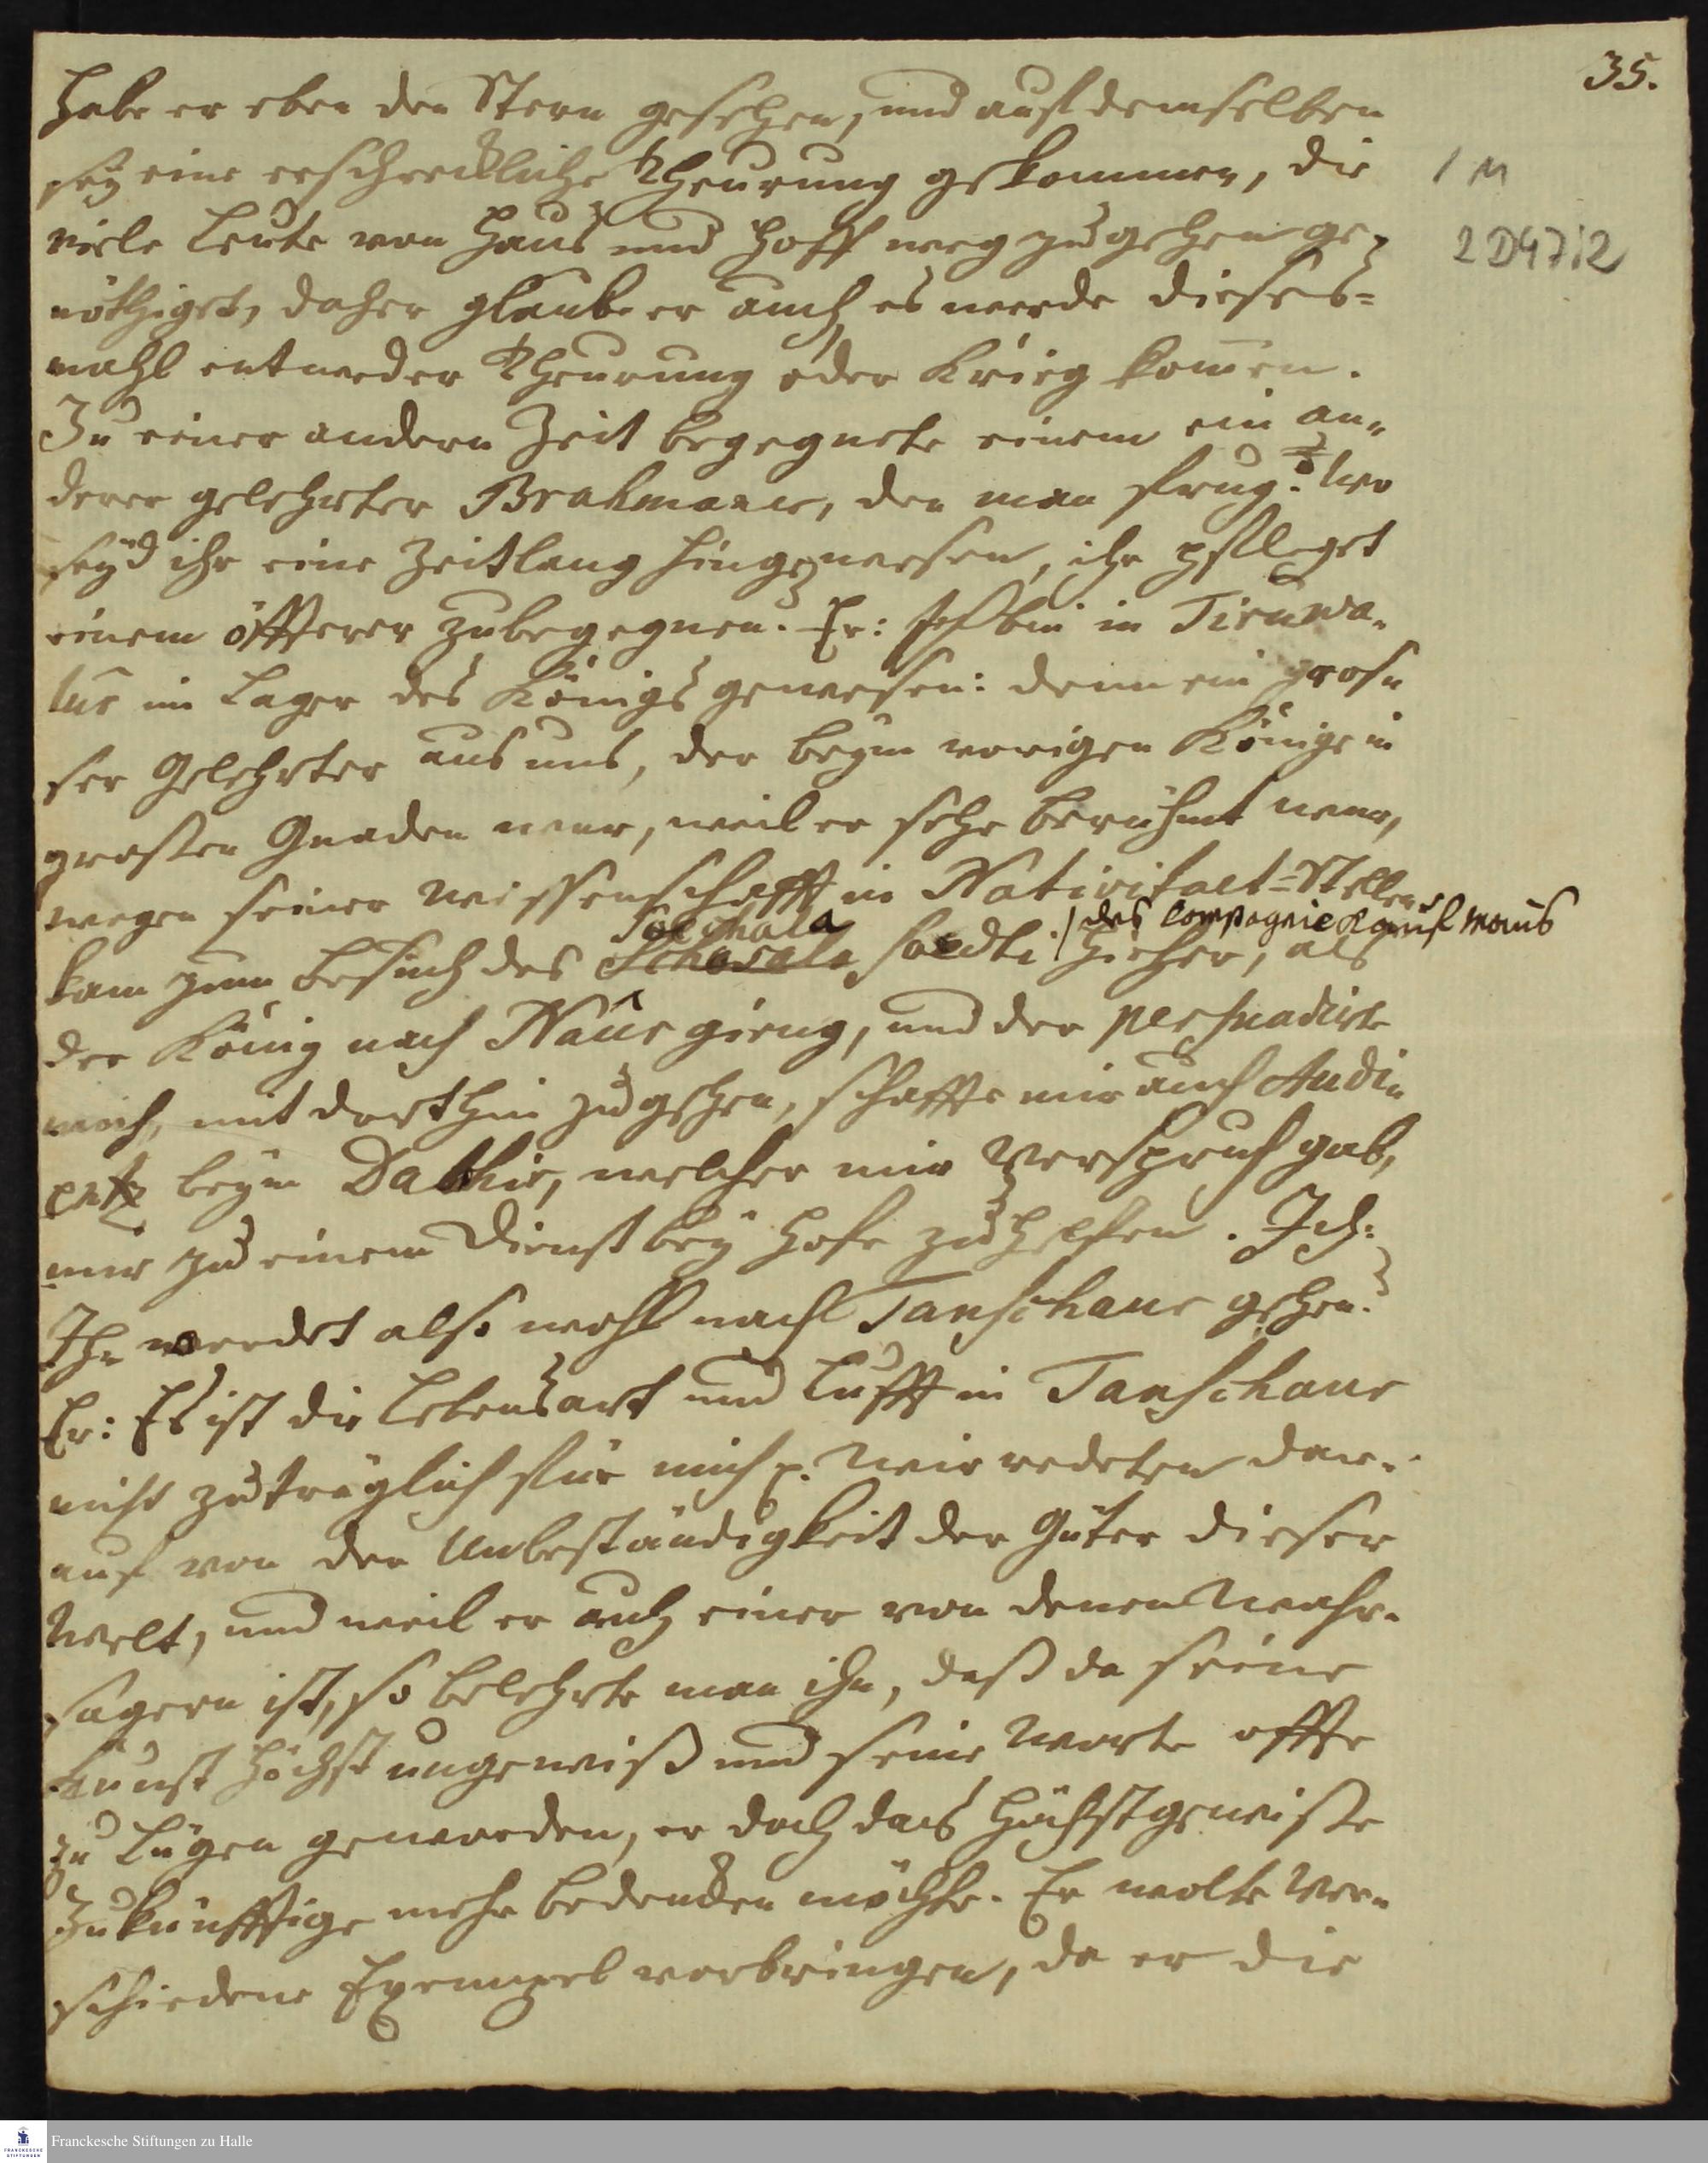 35.
habe er eben den Stern gesehen, und auf demselben
sey eine erschreckliche Theurung gekommen, die
viele Leute von Hauß und Hoff weg zu gehen ge-
nöthiget, daher glaube er auch es werde dieses-
mahl entweder Theurung oder Krieg kom̄en.
Zu einer andern Zeit begegnete einem ein an-
derer gelehrter Brahmane, den man frug: Wo
seyd ihr eine Zeitlang hingewesen, ihr pfleget
einem öffterer zubegegnen. Er: Ich bin in Tiruwa-
lur im Lager des Königs gewesen: denn ein gros-
ser Gelehrter aus uns, der beym vorigen Könige in
großen Gnaden war, weil er sehr berühmt war,
wegen seiner Wissenschafft in Nativitaet-Stellen
kam zum Besuch des Soedti / des Compagnie Kauf manns
hieher, als
der König nach Naur gieng, und der persuadirte
mich, mit dorthin zu gehen, schaffte mir auch Audi-
entz beym Dabhir, welcher mir Verspruch gab,
mir zu einem Dienst bey Hofe zu helfen. Ich:
Ihr werdet also wohl nach Tanschaur gehen?
Er: Es ist die Lebensart und Lufft in Tanschaur
nicht zuträglich für mich p. Wir redeten dar-
auf von der Unbeständigkeit der Güter dieser
Welt, und weil er auch einer von denen Wahr-
sagern ist, so belehrte man ihn, daß da seine
Kunst höchst ungewiß und seine Worte offte
zu Lügen geworden, er doch das höchstgewisse
Zukünfftige mehr bedencken möchte. Er wolte ver-
schiedene Exempel vorbringen, da er die
1 M
2 D47:2
Franckesche Stiftungen zu Halle